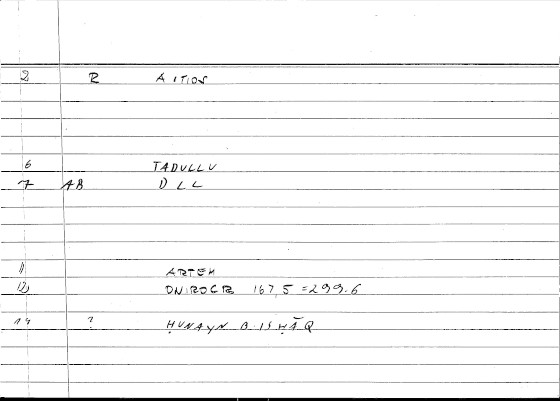 2 R AITIOS
6 TADULLU
7 AB DLL
11 ARTEM
12 ONIROCR 167,5 = 299.6
14 ? ḤUNAYN B. ISḤĀQ